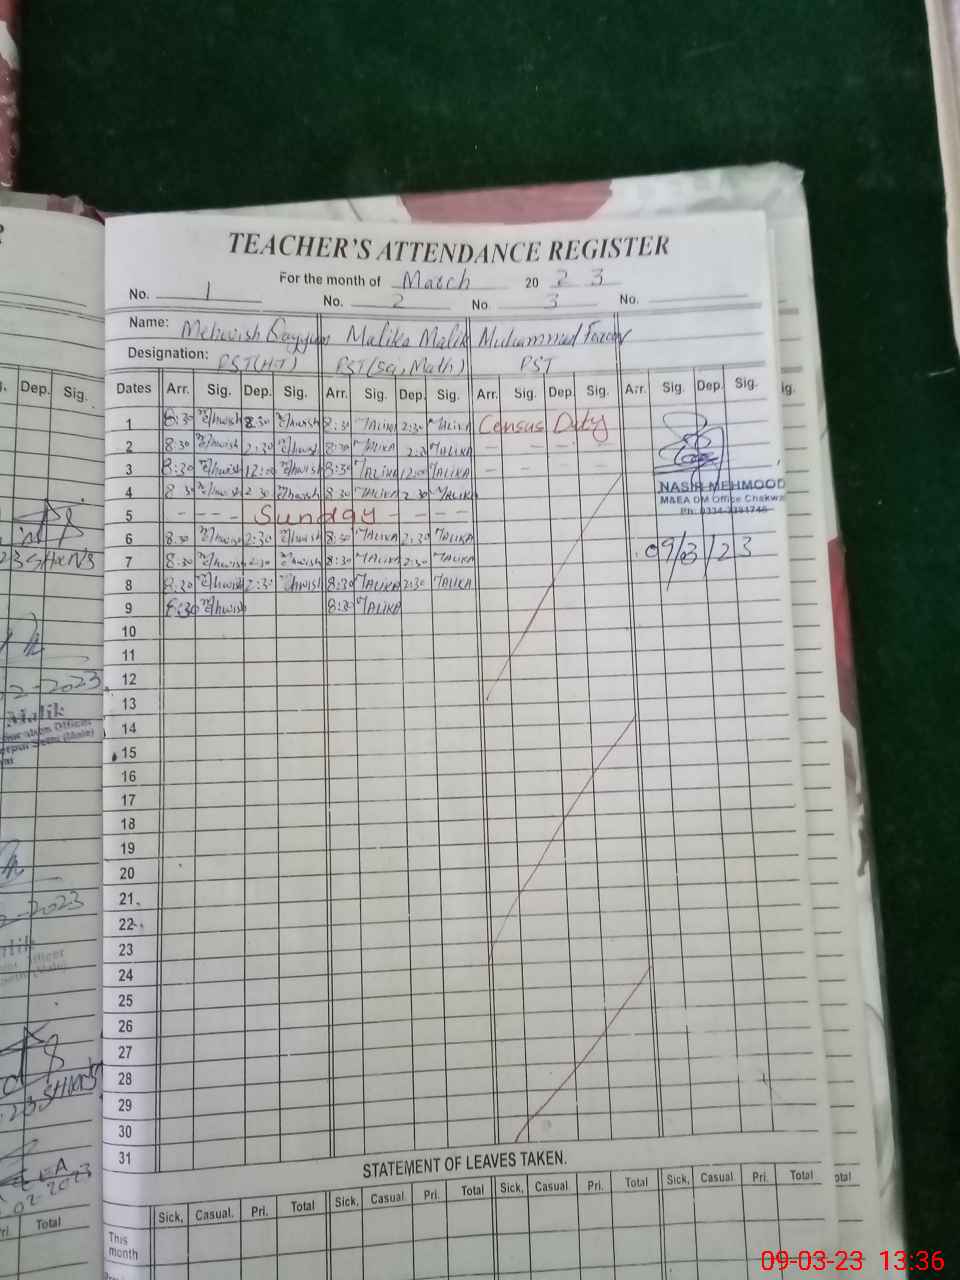 TEACHER'S ATTENDANCE REGISTER
For the month of March 20 2 3
No. 1 No. 2 No. 3 No.
Name: Mehwish Qayyum Malika Malik Muhammad
Designation: PST(HT) PST(Sci, Math) PST
Dates Arr. Sig. Dep. Sig. Arr. Sig. Dep. Sig. Arr. Sig. Dep. Sig. Arr. Sig. Dep. Sig.
1 8:30 Mehwish 2:30 Mehwish 8:30 MALIKA 2:30 MALIKA Census Duty
2 8:30 Mehwish 2:30 Mehwish 8:30 MALIKA 2:30 MALIKA - - -
3 8:30 Mehwish 12:00 Mehwish 8:30 MALIKA 12:00 MALIKA - - - -
4 8:30 Mehwish 2:30 Mehwish 8:30 MALIKA 2:30 MALIKA
NASIR MEHMOOD
M&EA DM Office Chakwal
5 - - - - Sunday - - - -
6 8:30 Mehwish 2:30 Mehwish 8:30 MALIKA 2:30 MALIKA
09/3/23
7 8:30 Mehwish 2:30 Mehwish 8:30 MALIKA 2:30 MALIKA
8 8:30 Mehwish 2:30 Mehwish 8:30 MALIKA 2:30 MALIKA
9 8:30 Mehwish 8:30 MALIKA
10
11
12
13
14
15
16
17
18
19
20
21
22
23
24
25
26
27
28
29
30
31
STATEMENT OF LEAVES TAKEN.
Sick, Casual. Pri. Total Sick, Casual. Pri. Total Sick, Casual. Pri. Total Sick, Casual Pri. Total
This
month
Dep. Sig.
2-2023
Malik
-2023
Pri. Total
09-03-23 13:36